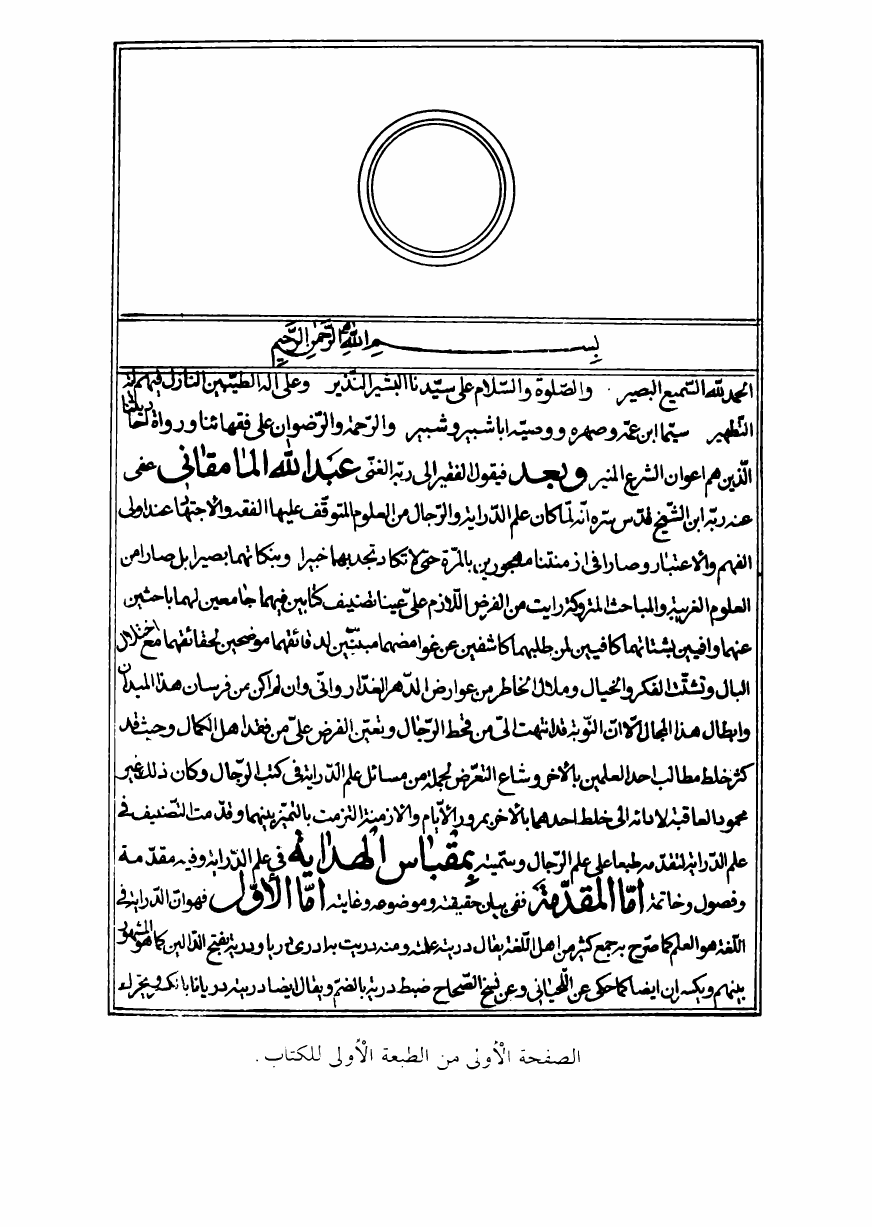 بسم الله الرحمن الرحيم
الحمد لله السميع البصير والصلوة والسلام على سيدنا البشير النذير وعلى آله الطيبين النازل فيهم آية
التطهير سيما ابن عمه وصهره ووصيه ابا شبر وشبير والرحمة والرضوان على فقهائنا ورواة احاديثنا
الذين هم اعوان الشرع المنير وبعد فيقول الفقير إلى ربه الغنى عبد الله المامقاني عفى
عنه ربه ابن الشيخ قدس سره انه لما كان علم الدراية والرجال من العلوم المتوقف عليها الفقه والاجتهاد عند اولى
الفهم والاعتبار وصارا في ازمنتنا مهجورين بالمرة حتى لا تكاد تجد بهما خبيرا وبنكاتهما بصيرا بل صارا من
العلوم الغريبة والمباحث المتروكة رايت من الفرض اللازم على عينا تصنيف كتابين فيهما جامعين لهما باحثين
عنهما وافيين بشتاتهما كافيين لمن طلبهما كاشفين عن غوامضهما مبينين لدقائقهما موضحين لحقائقهما مع اختلال
البال وتشتت الفكر والخيال وملال الخاطر من عوارض الدهر الغدار وانى وان لم اكن من فرسان هذا الميدان
وابطال هذا المجال الا ان النوبة قد انتهت الى من قحط الرجال وتعين الفرض على من فقد اهل الكمال وحيث قد
كثر خلط مطالب احد العلمين بالآخر وشاع التعرض لجملة من مسائل علم الدراية في كتب الرجال وكان ذلك غير
محمود العاقبة لادائه الى خلط احدهما بالآخر بمرور الأيام والازمنة التزمت بالتميز بينهما وقدمت التصنيف في
علم الدراية لتقدمه طبعا على علم الرجال وسميته بمقباس الهداية في علم الدراية وفيه مقدمة
وفصول وخاتمة اما المقدمة ففي بيان حقيقته وموضوعه وغايته اما الأول فهو ان الدراية في
اللغة هو العلم كما صرح به جمع كثير من اهل اللغة يقال دريته علمته ومنه دريت به ادرى دريا ودرية بفتح الدالين كما هو المشهور
بينهم وبكسران ايضا كما حكى عن اللحياني وعن نسخ الصحاح ضبط درية بالضم ويقال ايضا دريته دريانا بالكسر ويحرك
الصفحة الأولى من الطبعة الأولى للكتاب.